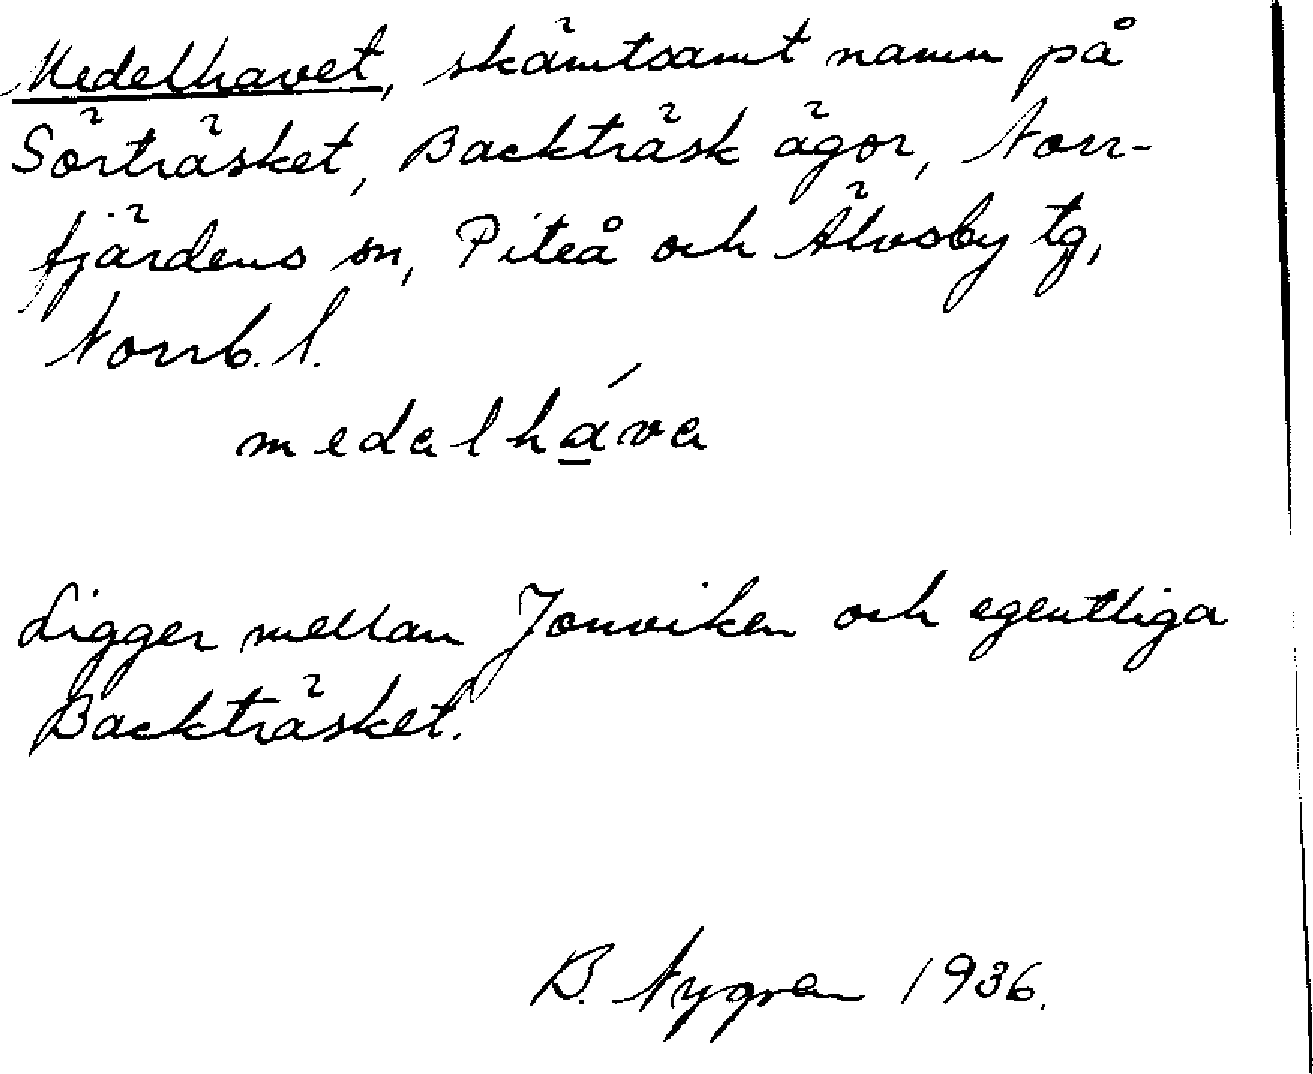 Medelhavet, skämtsamt namn på
Sörträsket, Backträsk ägor, Norr-
fjärdens sn, Piteå och Älvsby tg,
Norrb. l.
medalháva
Ligger mellan Jonviken och egentliga
Backträsket.
B. Nygren 1936.